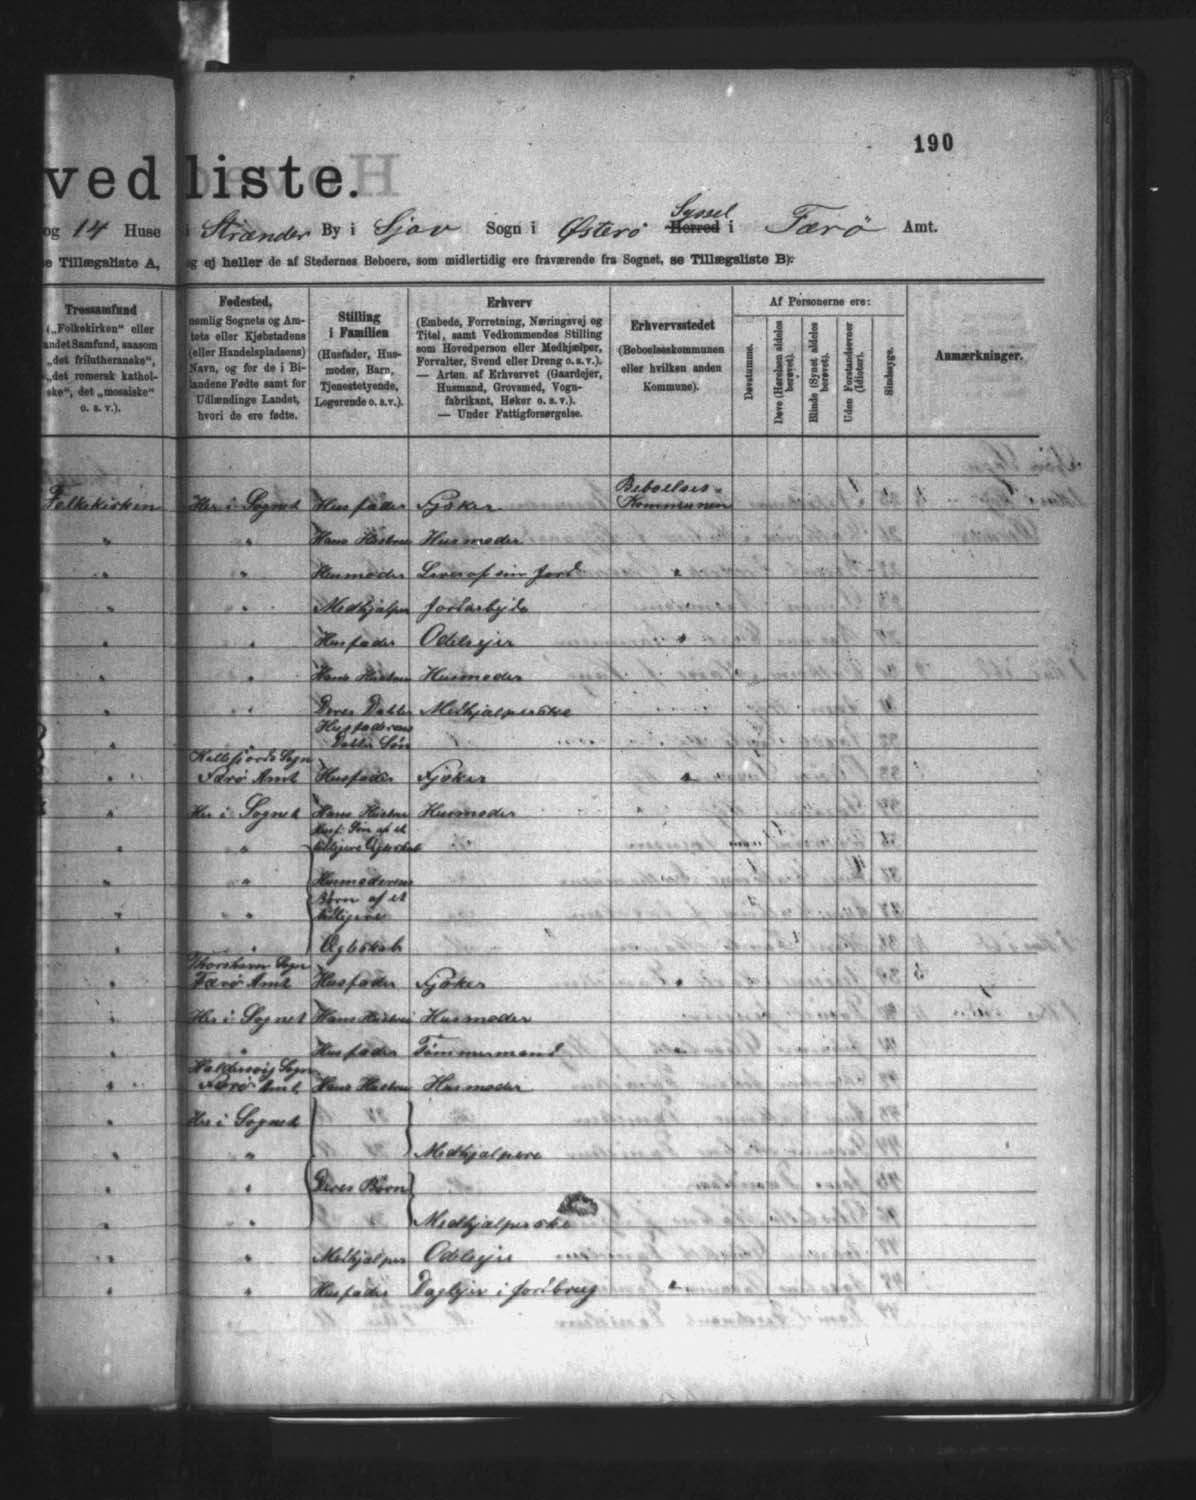 190
vedliste.
og 14 Huse i Strænder By i Sjov Sogn i Østerø Syssel Herred i Færø Amt.
e Tillægsliste A, og ej heller de af Stedernes Beboere, som midlertidig ere fraværende fra Sognet, se Tillægsliste B):
Trossamfund
(„Folkekirken“ eller
andet Samfund, saasom
„det frilutheranske“,
„det romersk kathol-
ske“, det „mosaiske“
o. s. v.).
Fødested,
nemlig Sognets og Am-
tets eller Kjøbstadens
(eller Handelspladsens)
Navn, og for de i Bi-
landene Fødte samt for
Udlændinge Landet,
hvori de ere fødte.
Stilling
i Familien
(Husfader, Hus-
moder, Barn,
Tjenestetyende,
Logerende o. s. v.).
Erhverv
(Embede, Forretning, Næringsvej og
Titel, samt Vedkommendes Stilling
som Hovedperson eller Medhjælper,
Forvalter, Svend eller Dreng o. s. v.).
— Arten af Erhvervet (Gaardejer,
Husmand, Grovsmed, Vogn-
fabrikant, Høker o. s. v.).
— Under Fattigforsørgelse.
Erhvervsstedet
(Beboelseskommunen
eller hvilken anden
Kommune).
Af Personerne ere:
Døvstumme.
Døve (Hørelsen aldeles
berøvet).
Blinde (Synet aldeles
berøvet).
Uden Forstandsevner
(Idioter).
Sindssyge.
Anmærkninger.
Folkekirken Her i Sognet Husfader Fisker Beboelses-
Kommunen
" " Hans Hustru Husmoder
" " Husmoder Lever af sin Jord "
" " Medhjælper Jordarbejde
" " Husfader Odelsejer "
" " Hans Hustru Husmoder
" " Deres Datter Medhjælperske
" " Husfaderens
Datter Søn
Kollefjords Sogn
" Færø Amt Husfader Fisker "
" Her i Sognet Hans Hustru Husmoder
" " Husf. Søn af et
tidligere Ægteskab
" " Husmoderens
" " Børn af et
tidligere
" " Ægteskab
Thorshavn Sogn
" Færø Amt Husfader Fisker "
" Her i Sognet Hans Hustru Husmoder
" " Husfader Tømmermand "
Haldersvig Sogn
" Færø Amt Hans Hustru Husmoder
" Her i Sognet
" " Medhjælpere
" " Deres Børn
" " Medhjælperske
" " Medhjælper Odelsejer
" " Husfader Daglejer i Jordbrug "